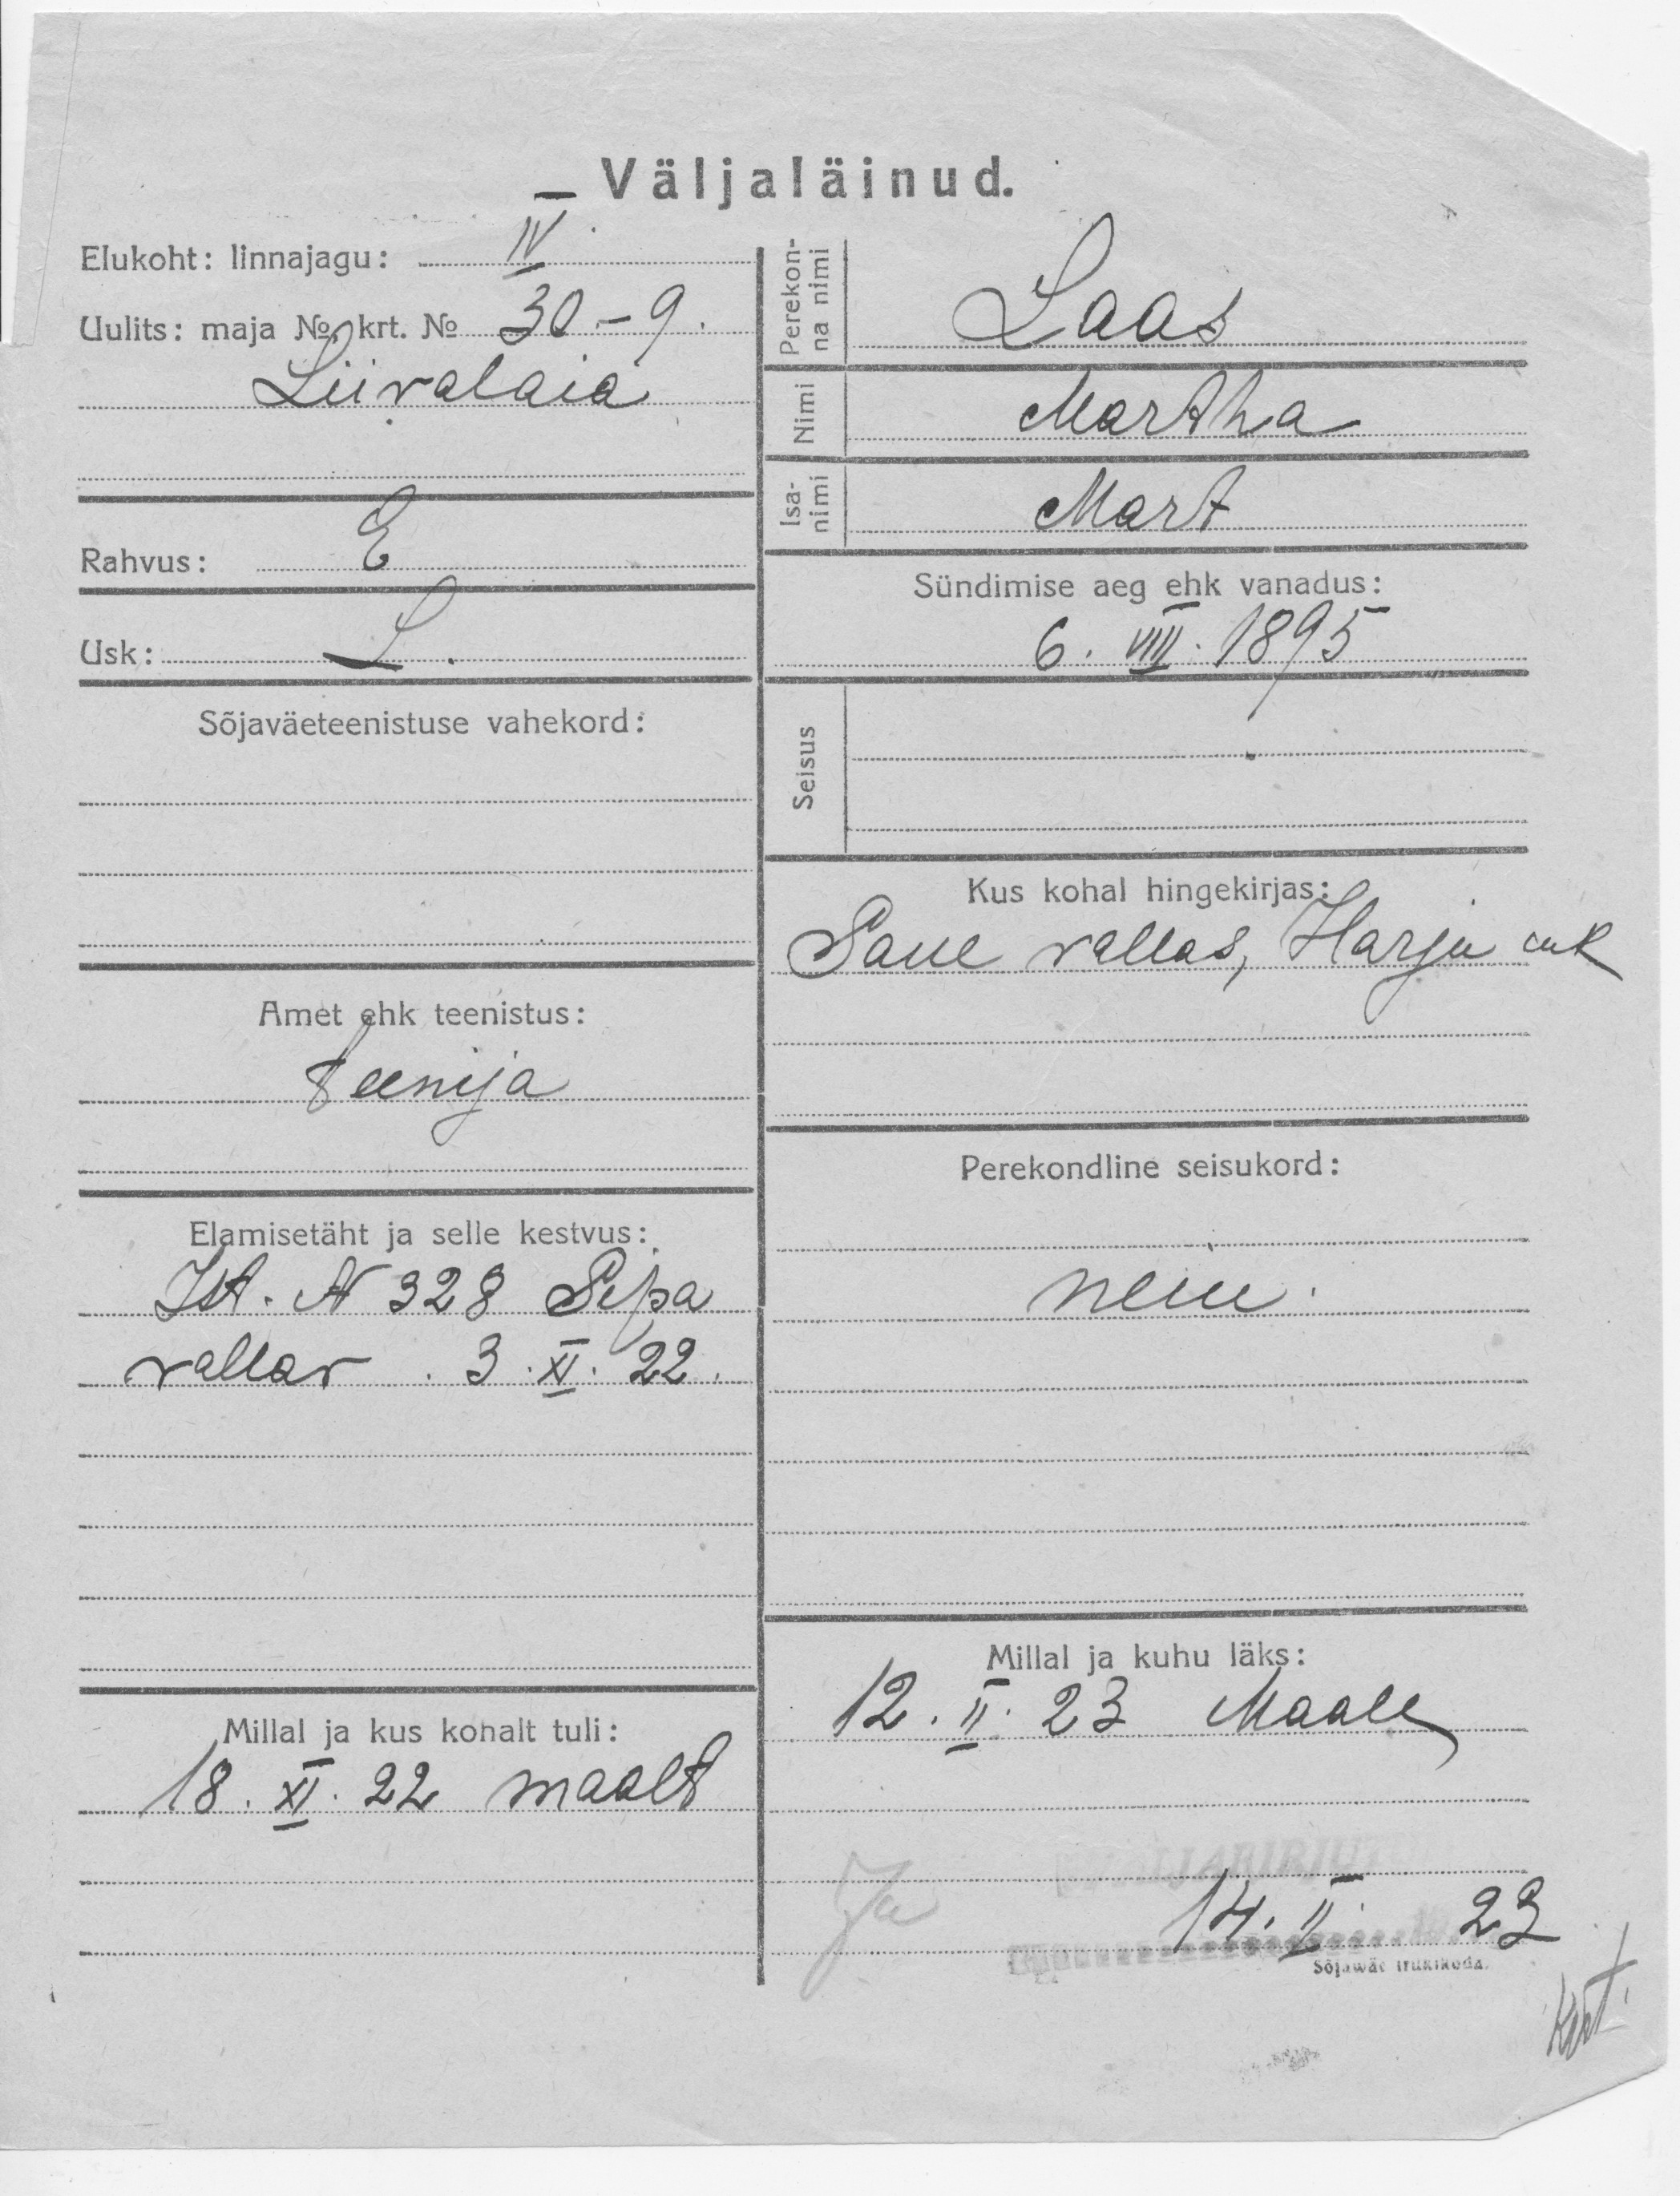 Väljaläinud.
Elukoht: linnajagu: IV.
Uulits: maja № krt. № 30.-9.
Liivalaia
Rahvus: E
Usk: L.
Sõjaväeteenistuse vahekord:
Amet ehk teenistus:
teenija
Elamisetäht ja selle kestvus:
Ist. N 328 Sipa
vallav. 3.XI.22.
Millal ja kus kohalt tuli:
18.XI.22 maalt
Perekonna nimi Laas
Nimi Martha
Isa-nimi Mart
Sündimise aeg ehk vanadus:
6. VIII. 1895
Seisus
Kus kohal hingekirjas:
Saue vallas, Harju mk
Perekondline seisukord:
neiu.
Millal ja kuhu läks:
12.II.23 Maale
14.II. 23
Sõjawäe trükikoda.